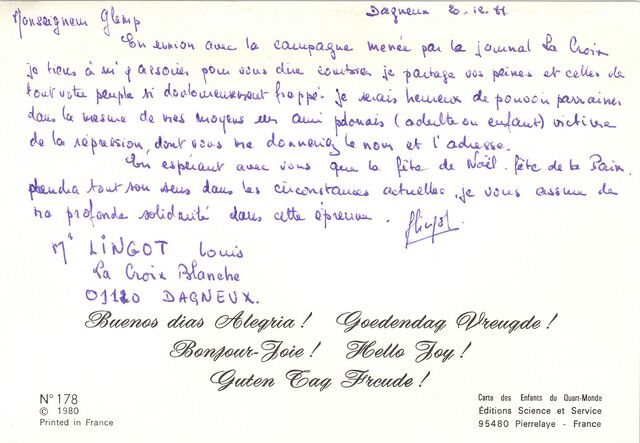 Dagneux 20.12.81
Monseigneur Glemp
En union avec la campagne menée par le journal La Croix
je tiens à m'y associer pour vous dire combien je partage vos peines et celles de
tout votre peuple si douloureusement frappé. je serais heureux de pouvoir parrainer
dans la mesure de mes moyens un ami polonais (adulte ou enfant) victime
de la répression, dont vous me donneriez le nom et l'adresse.
En espérant avec vous que la fête de Noël. fête de la Paix.
prendra tout son sens dans les circonstances actuelles je vous assure de
ma profonde solidarité dans cette épreuve.
LINGOT Louis
La Croix Blanche
01120 DAGNEUX.
Buenos dias Alegria ! Goedendag Vreugde !
Bonjour-Joie ! Hello Joy !
Guten Tag Freude !
N° 178
© 1980
Printed in France
Carte des Enfants du Quart-Monde
Éditions Science et Service
95480 Pierrelaye - France